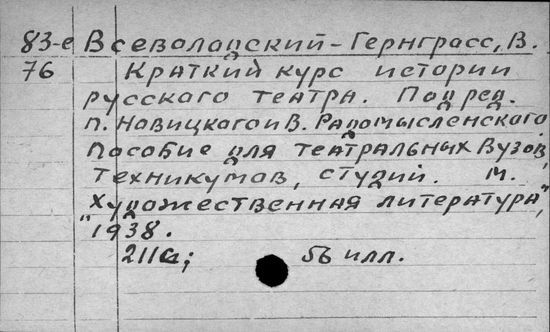 83-е Всеволодский-Гернгросс, В.
76 Краткий курс истории
русского театра. Под ред.
П. Новицкого и В. Радомысленского.
Пособие для театральных Вузов,
техникумов, студий. М.
"Художественная литература",
1938.
211с; 56 илл.